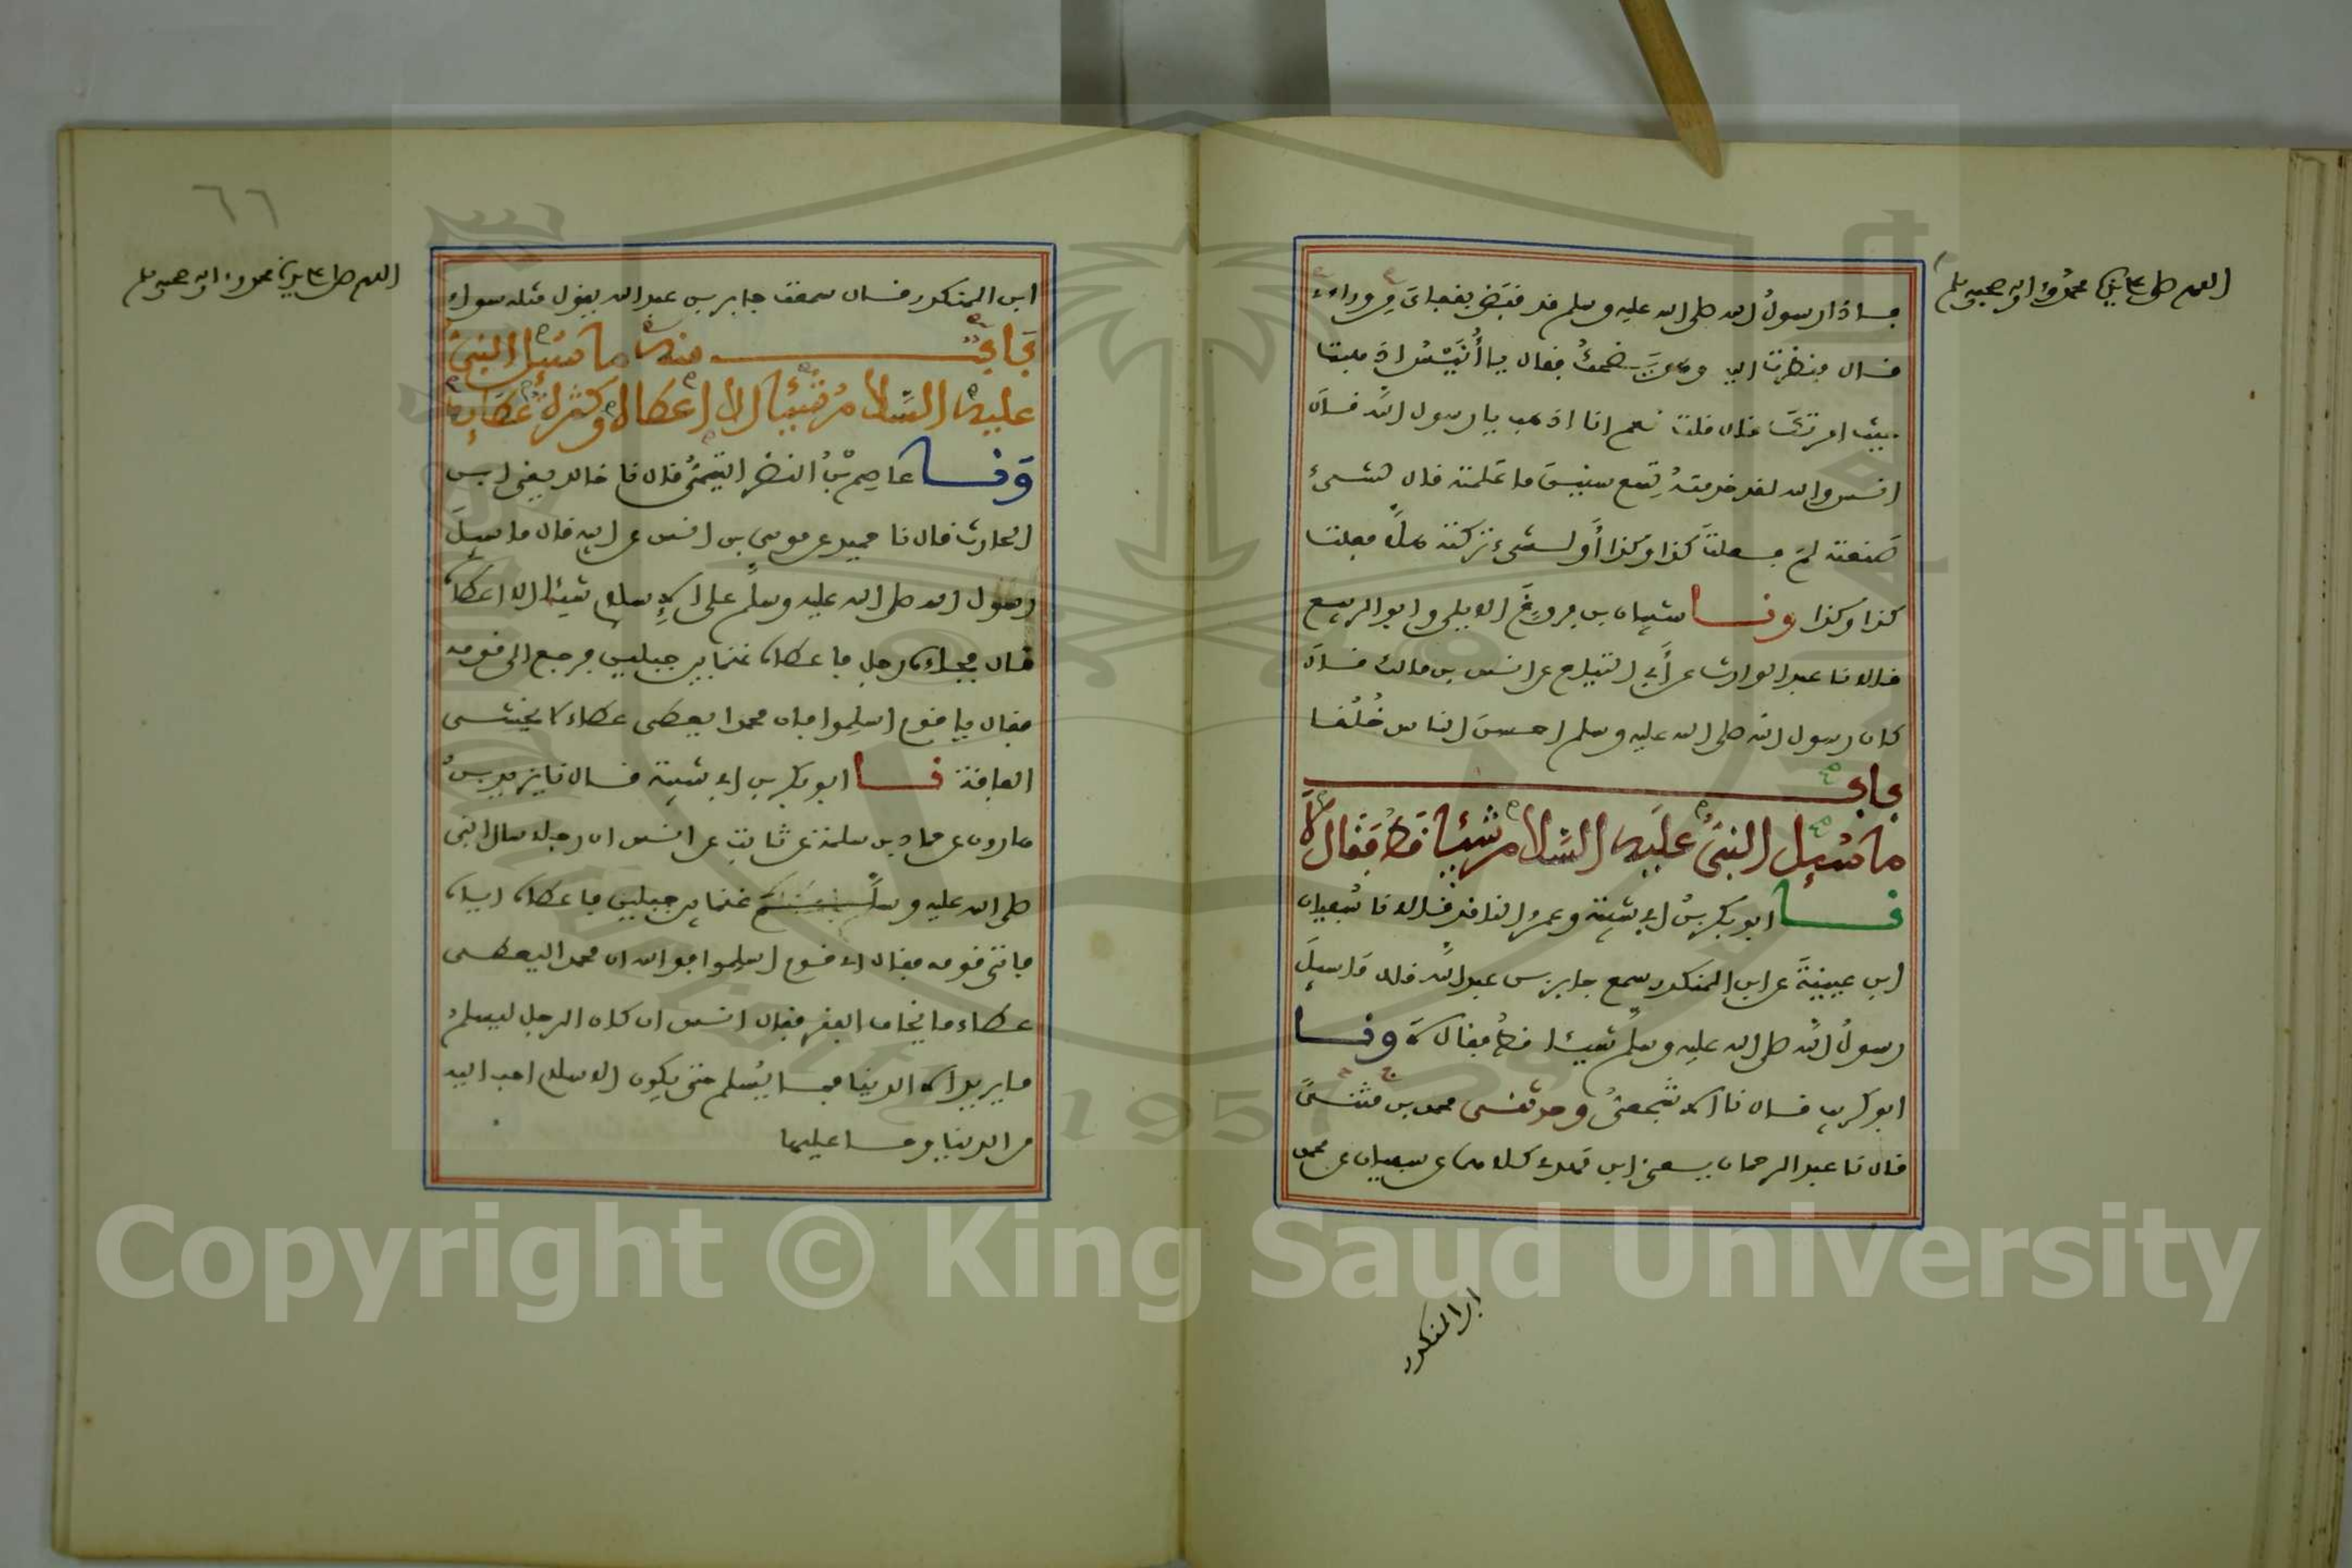 اللهم صل على سيدنا محمد وءاله وصحبه وسلم
فاذا رسولُ الله صلى الله عليه وسلم قد قبَض بقفاىَ من وراءى
قال فنظرت اليه وهو يَضحكُ فقال يا أُنَيْسُ اذهبت
حيث امرتك قال قلت نعم انا اذهب يا رسول الله قال
انس والله لقد خدمته تِسع سنينَ ما عَلمته قال لشىءٍ
صَنعته لمَ فعلتَ كذا وكذا أو لشىء تركته هلاَّ فعلت
كذا وكذا ونا شيبان بن فروخَ الابلى وابو الربيع
قالا نا عبد الوارث عن أبى التياح عن انس بن مالك قال
كان رسول الله صلى الله عليه وسلم احسنَ الناس خُلُقا
باب
ما سُئِل النبىُّ عليه السلام شيئا قط فقال لا
نا ابو بكر بنُ ابى شيبة وعمرو الناقد قالا نا سُفيان
ابن عيينةَ عن ابن المنكدر سمع جابر بن عبد الله قال مَا سيلَ
رسولُ الله صلى الله عليه وسلم شيئا قطُّ فقال لا ونا
ابو كريب قال نا الاشجعىُّ وحدثنى محمد بن مثنىًّ
قال نا عبد الرحمان يعنى ابن مهدى كلاهما عن سفيان عن محمد
ابن المنكدر
٦٦
اللهم صل على سيدنا محمد وءاله وصحبه وسلم
ابن المنكدر قال سمعت جابر بن عبد الله يقول مثله سواء
بَابٌ منه ما سُئِل النبىُّ
عليه السَّلامُ شَيْئا الا اعطاه وكثرة عَطَائِه
وَنا عاصِم بْنُ النضر التيمىُّ قال نا خالد يعنى ابن
الحارث قال نا حميد عن موسى بن انس عن ابيه قال ما سيلَ
رسول الله صلى الله عليه وسلم على الإسلام شيئا الا اعطاه
قال فجاءه رجل فاعطاه غنما بين جبلين فرجع الى قومه
فقال يا قوم اسلِموا فان محمدا يعطى عطاء لا يخشى
الفاقة نا ابو بكر بن ابى شيبة قال نا يزيد بنُ
هارون عن حماد بن سلمة عن ثابت عن انس ان رجلا سال النبى
صلى الله عليه وسلم غنما بين جبلين فاعطاه اياه
فاتى قومه فقال اى قوم اسلِموا فوالله ان محمدا ليعطى
عطاء ما يخاف الفقر فقال انس ان كان الرجل ليسلمُ
ما يريد الا الدنيا فما يُسلم حتى يكون الاسلام احب اليه
من الدنيا وما عليها
Copyright © King Saud University
1957